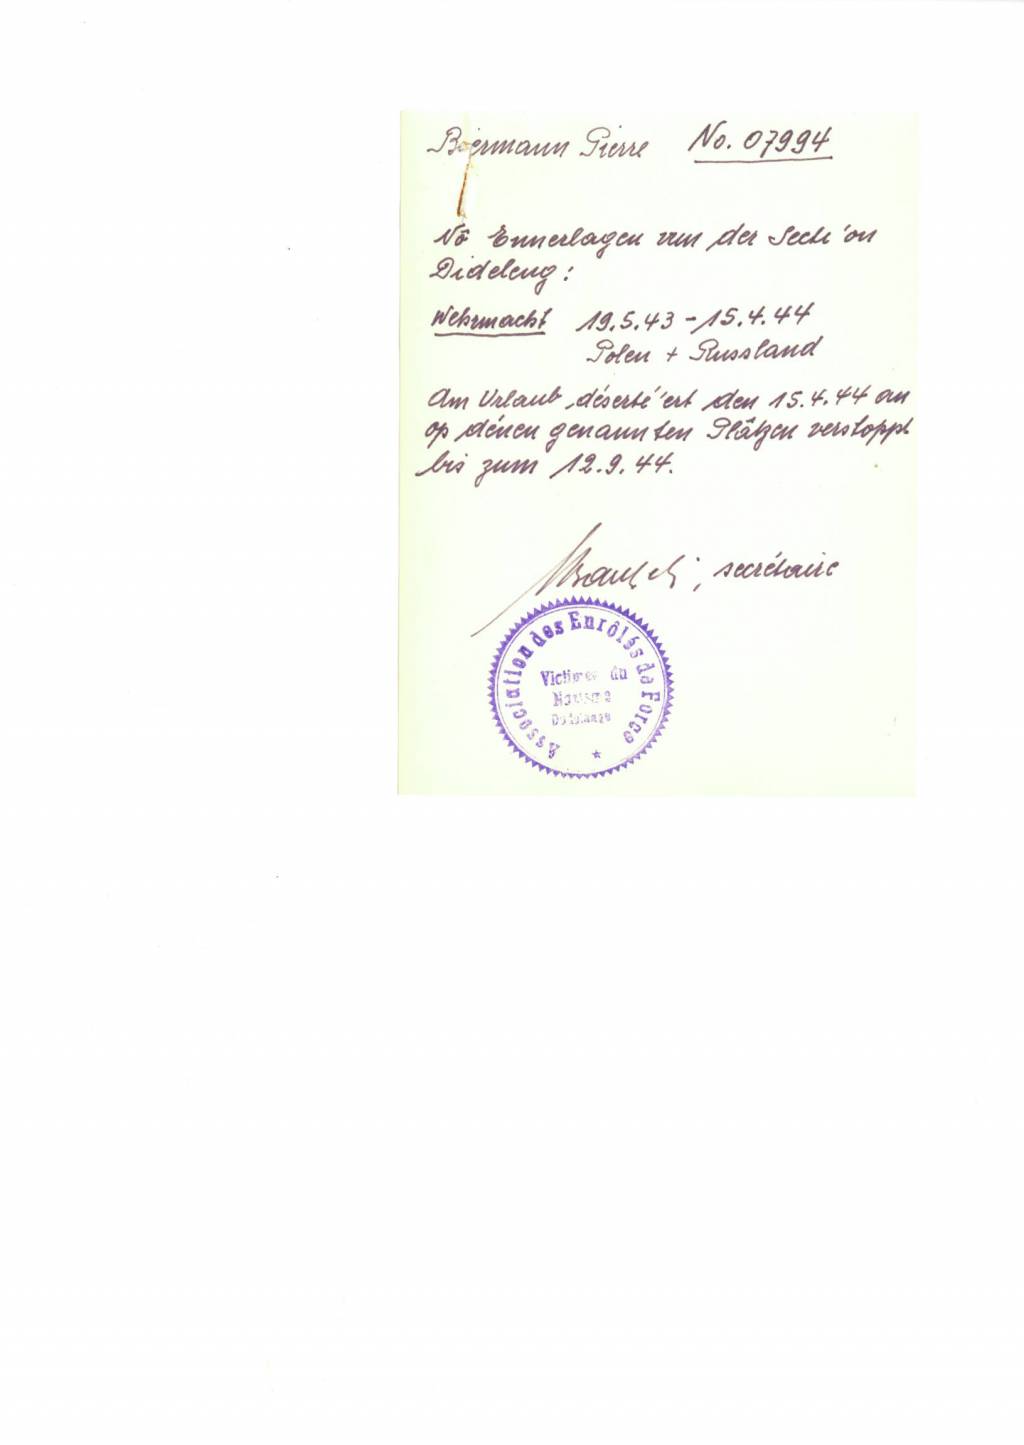 Biermann Pierre No. 07994
No Ennerlagen vun der Secti'on
Dideleng:
Wehrmacht 19.5.43 - 15.4.44
Polen + Russland
Am Urlaub déserté'ert den 15.4.44 an
op dénen genannten Plätzen verstoppt
bis zum 12.9.44.
, secrétaire
Association des Enrôlés de Force
Victimes du
Nazisme
Dudelange